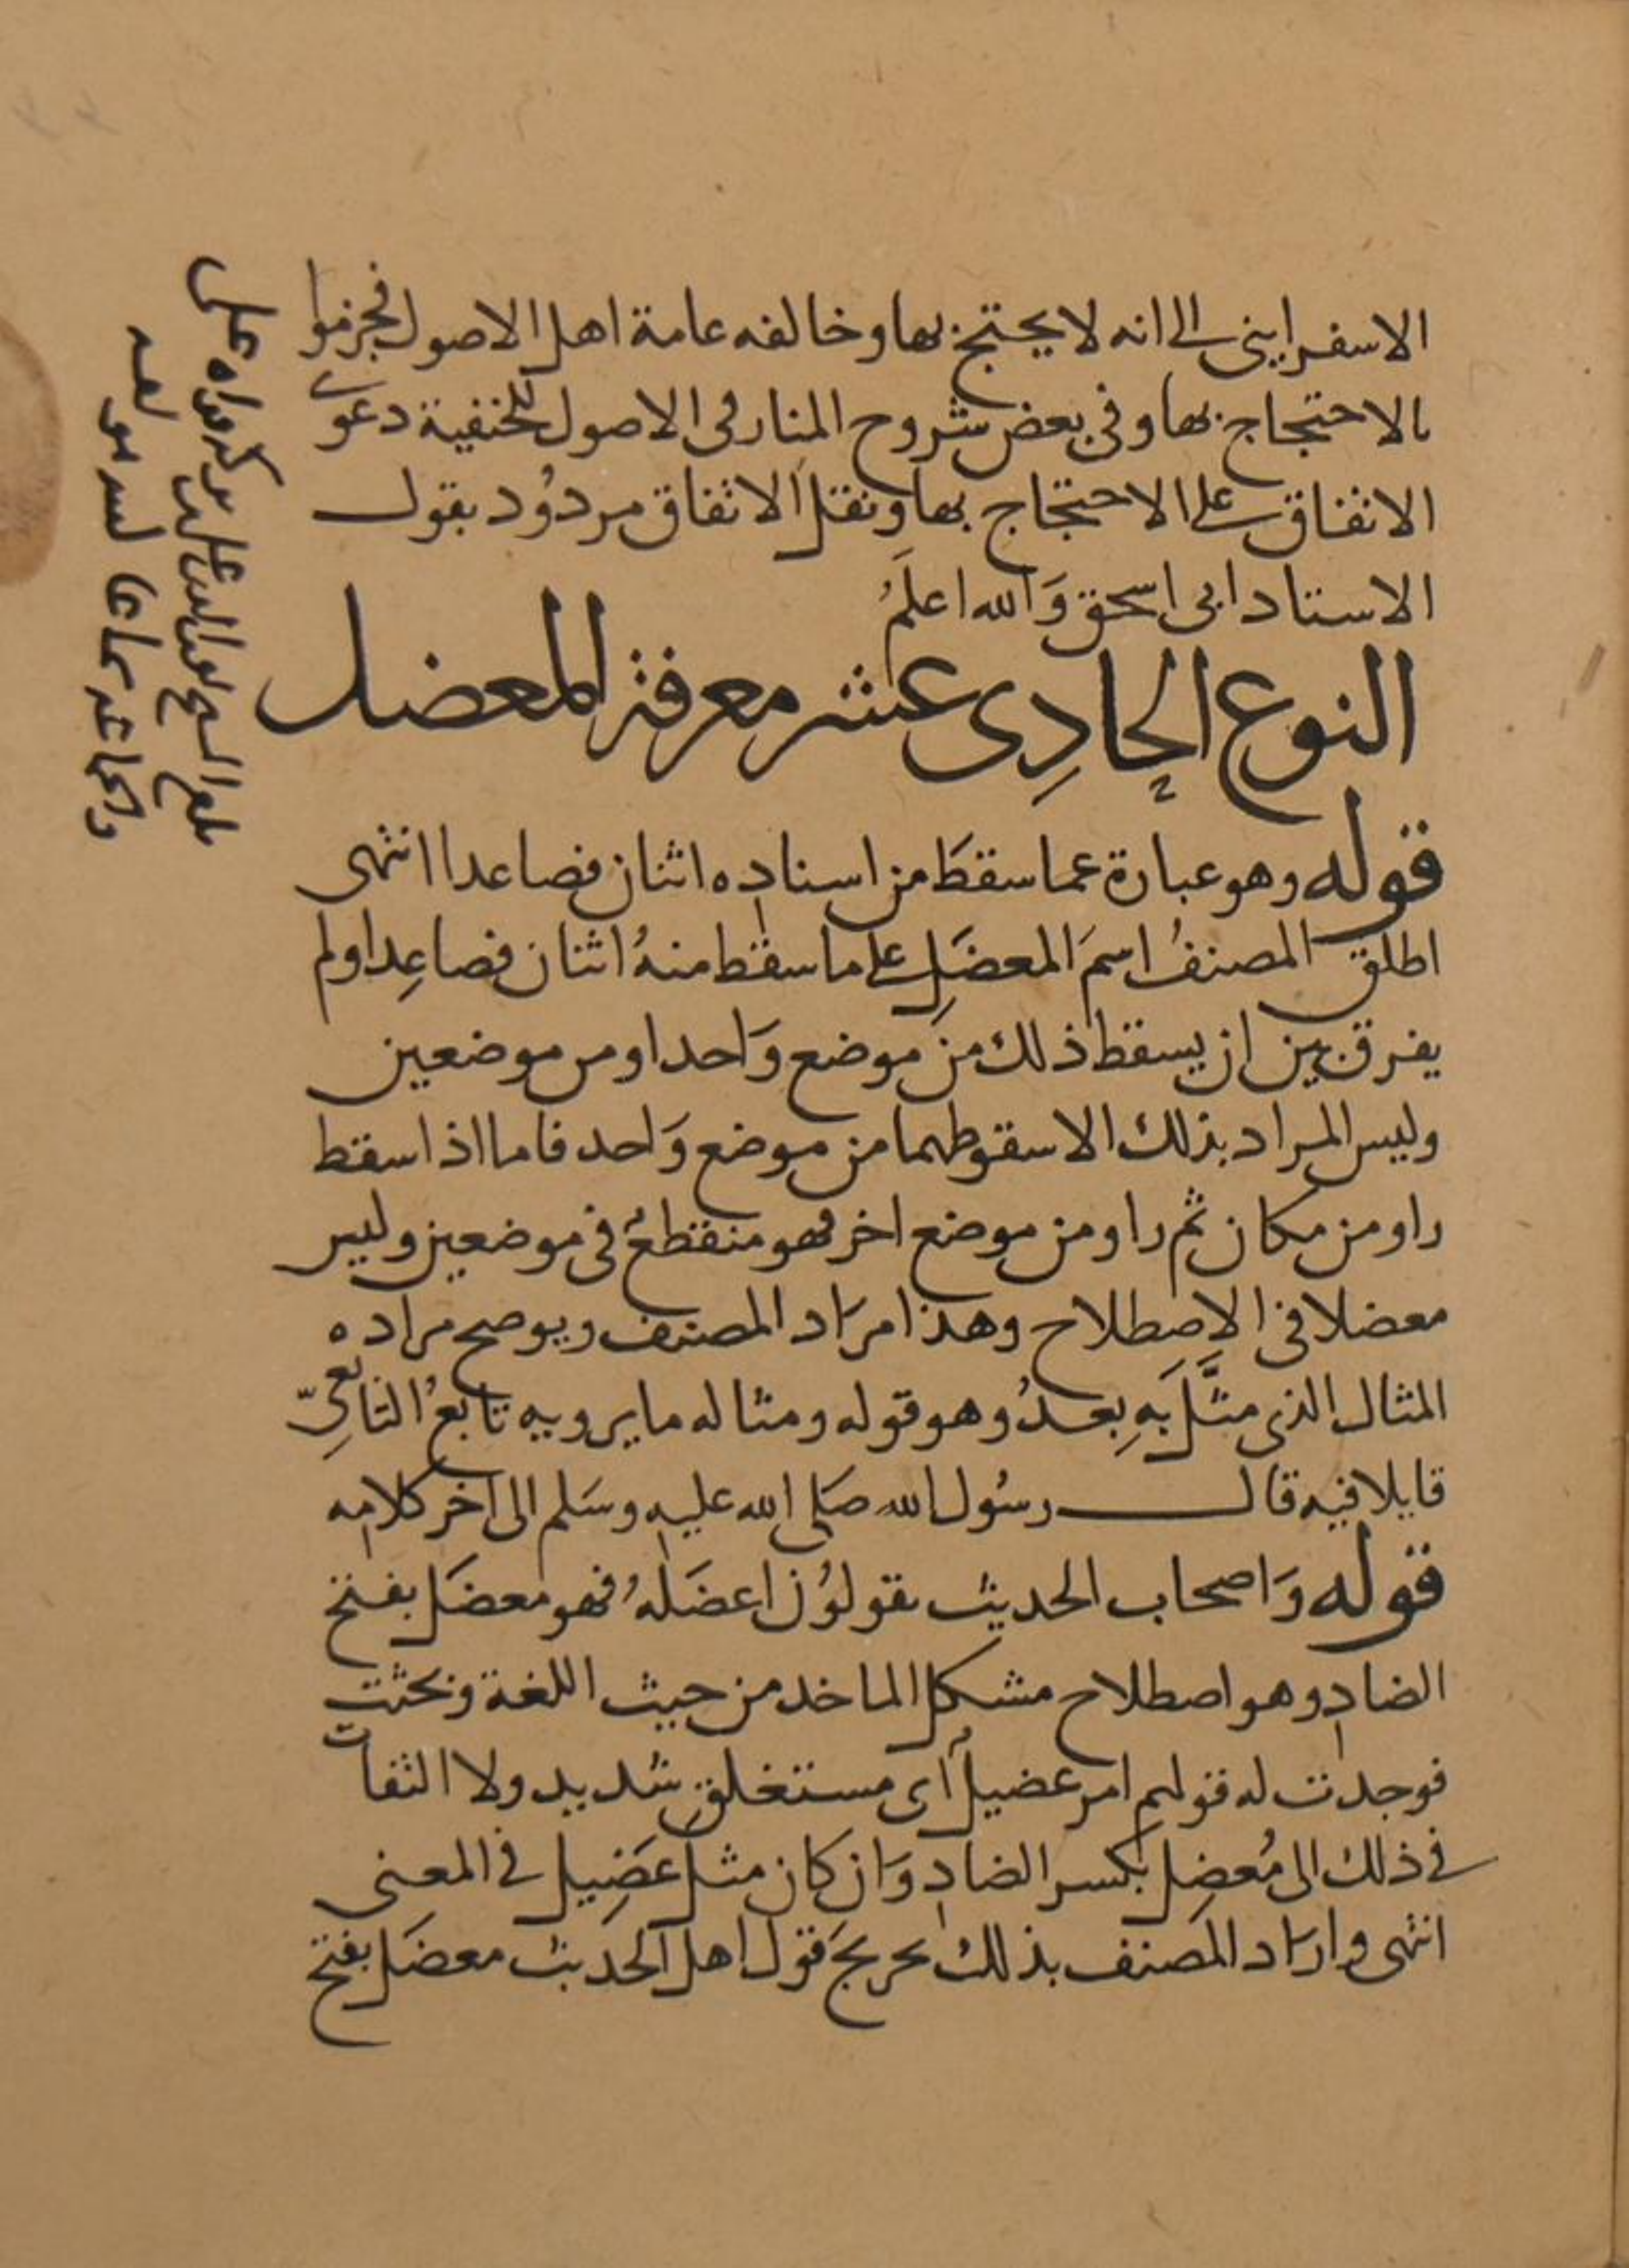 الاسفرايني الى انه لا يحتج بها وخالفه عامة اهل الاصول فجزموا
بالاحتجاج بها وفي بعض شروح المنار في الاصول للحنفية دعوى
الاتفاق على الاحتجاج بها ونقل الاتفاق مردود بقول
الاستاد ابى اسحق وَالله اعلمُ
النوع الحادِى عشر معرفة المعضل
قوله وهو عبارة عما سقطَ من اسناده اثنان فصاعدا انتهى
اطلق المصنفُ اسمَ المعضَلِ على ما سقط منهُ اثنان فصاعِدا ولم
يفرق بين ان يسقط ذلك من موضع وَاحد او من موضعين
وليس المراد بذلك الا سقوطهما من موضع وَاحد فاما اذا سقط
راو من مكان ثم راو من موضع اخر فهو منقطعٌ في موضعين وليس
معضلا في الاِصطلاح وهذا مرَاد المصنف ويوضح مراده
المثال الذى مثَّلَ بَهِ بعدُ وهو قوله ومثاله ما يرويه تابعُ التابعىِّ
قايلا فيه قال رسُول الله صَلى الله عليه وسَلم الى اخر كلامه
قوله وَاصحاب الحديث يقولوُن اعضَلهُ فهو معضَل بفتح
الضاد وهو اصطلاح مشكل الماخد من حيث اللغة وبحثت
فوجدت له قولهم امر عضيلٌ اى مستغلق شديد ولا التفات
في ذلك الى مُعضِل بكسر الضاد وَان كان مثل عَضِيل في المعنى
انتهى وارَاد المصنف بذلك تخريجَ قول اهل الحديث معضَل بفتح